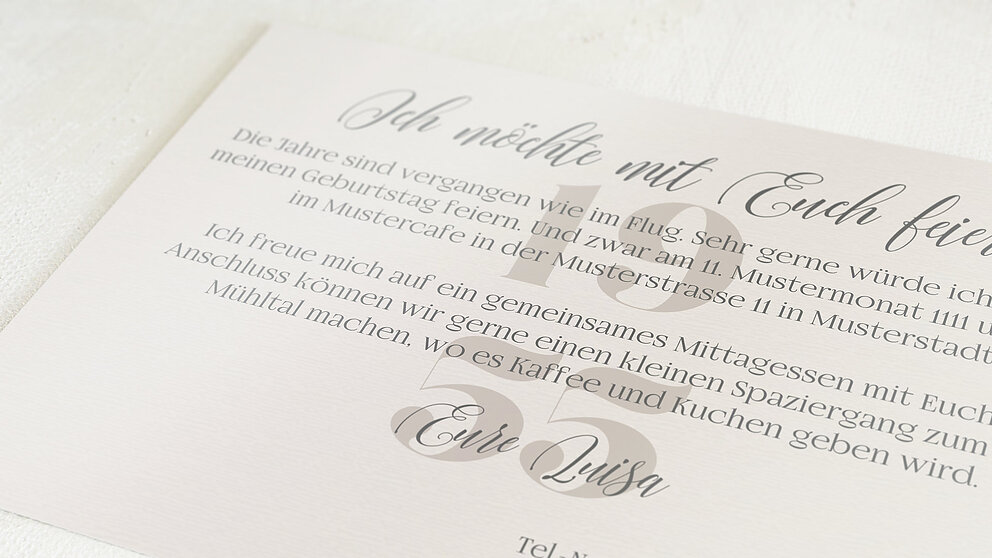 Ich möchte mit Euch
Die Jahre sind vergangen wie im Flug. Sehr gerne würde ich
meinen Geburtstag feiern. Und zwar am 11. Mustermonat 1111
im Mustercafe in der Musterstrasse 11 in Musterstadt
19
Ich freue mich auf ein gemeinsames Mittagessen mit Euch
Anschluss können wir gerne einen kleinen Spaziergang zum
Mühltal machen, wo es Kaffee und Kuchen geben wird.
55
Eure Luisa